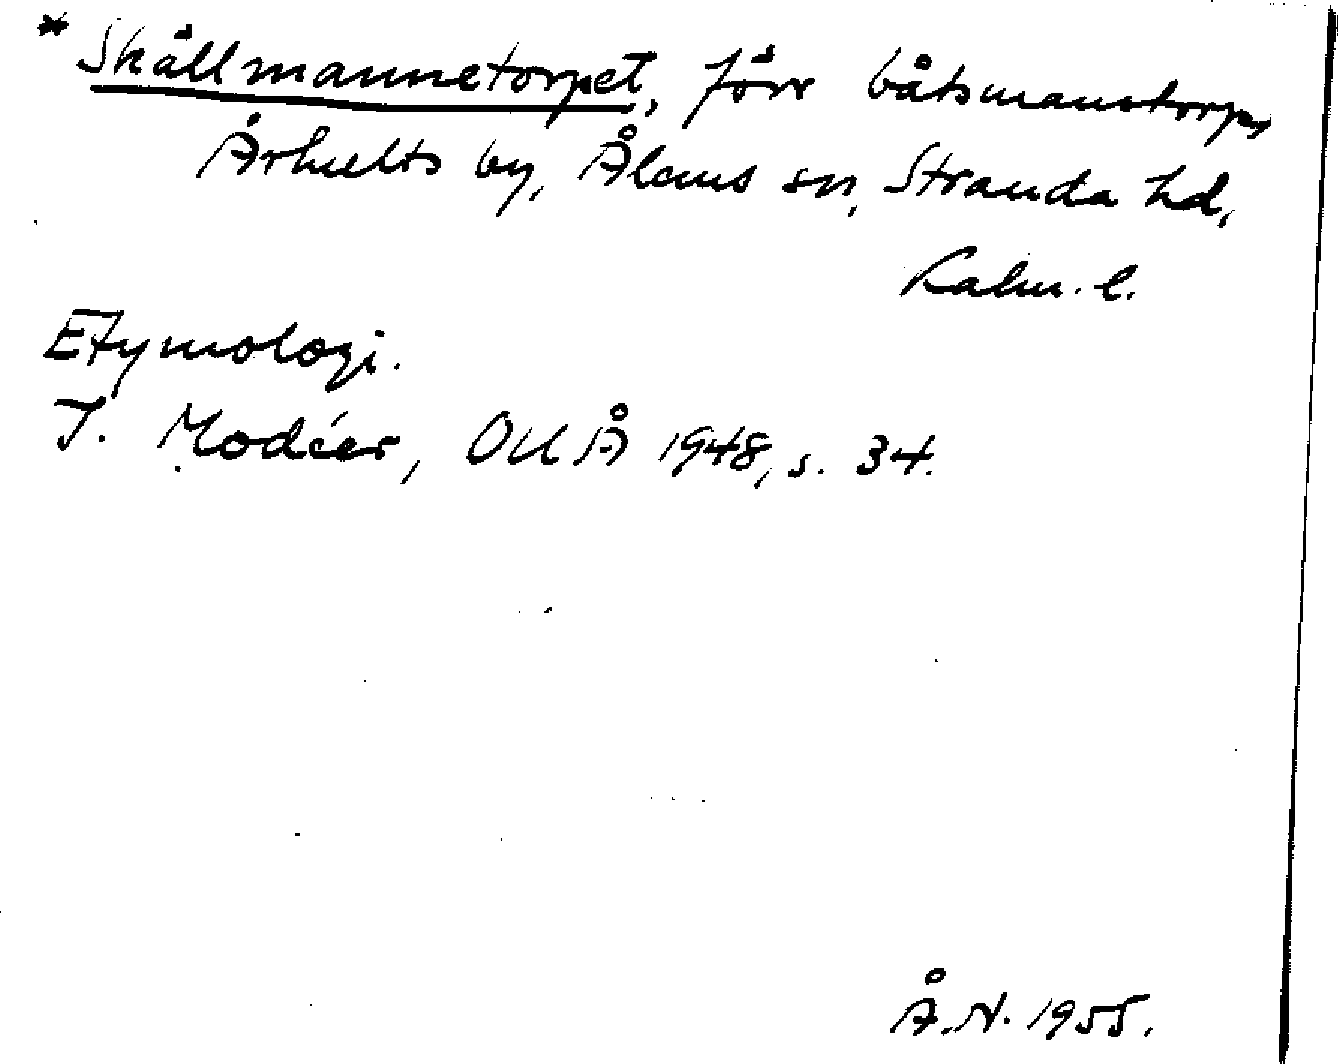 * Skållmannetorpet, förr båtsmanstorp,
Århults by, Ålems sn, Stranda hd,
Kalm. l.
Etymologi.
I. Modéer, OUÅ 1948, s. 34.
Å.N. 1955.